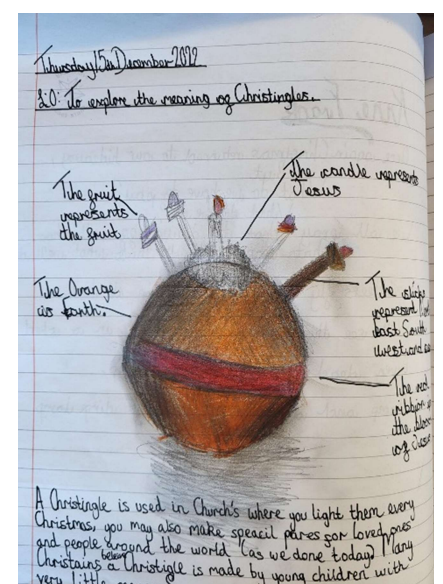 Thursday 15th December 2022
LO: To explore the meaning of Christingles.
The candle represents
Jesus
The fruit
represents
the fruit
The Orange
is Earth.
The sticks
represent
East South
west and
The red
ribbon
the blood
of Jesus
A Christingle is used in Church's where you light them every
Christmas, you may also make speacil pares for loved ones
and people around the world (as we done today) Many
Christains believe a Christigle is made by young children with
very little